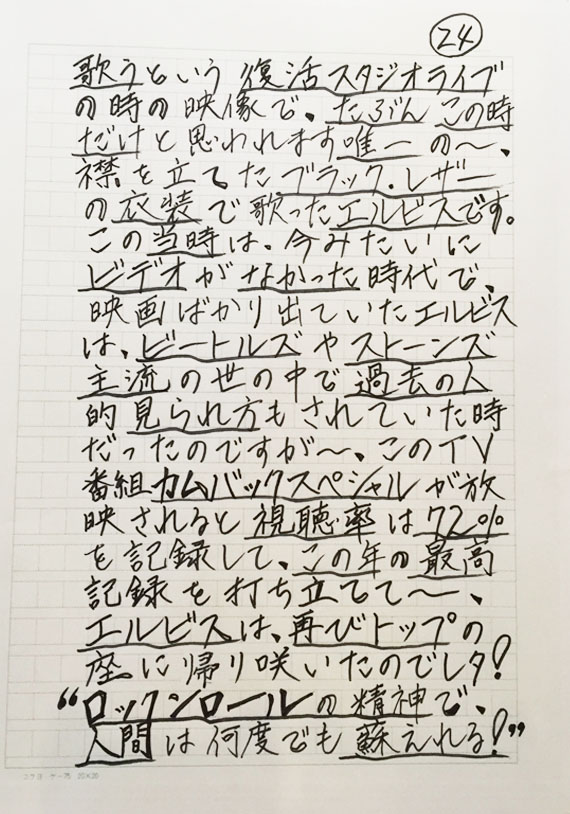 24
歌うという 復活スタジオライブ
の時の映像で、たぶん この時
だけと思われます唯一の〜、
襟を立てたブラック・レザー
の衣装で歌ったエルビスです。
この当時は、今みたいに
ビデオがなかった時代で、
映画ばかり出ていたエルビス
は、ビートルズやストーンズ
主流の世の中で過去の人
的見られ方もされていた時
だったのですが〜、このTV
番組カムバックスペシャルが放
映されると視聴率は72%
を記録して、この年の最高
記録を打ち立てて〜、
エルビスは、再びトップの
座に帰り咲いたのでしタ!
“ロックンロールの精神で、
人間は何度でも蘇えれる!”
コクヨ ケー75 20×20